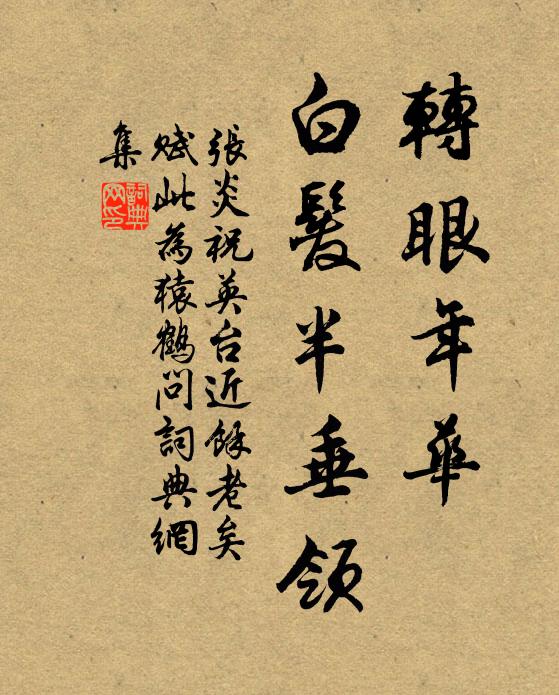 轉眼年華
白髮半垂領
張炎祝英台近餘老矣
賦此為猿鶴問詞典網
集
詞典網印